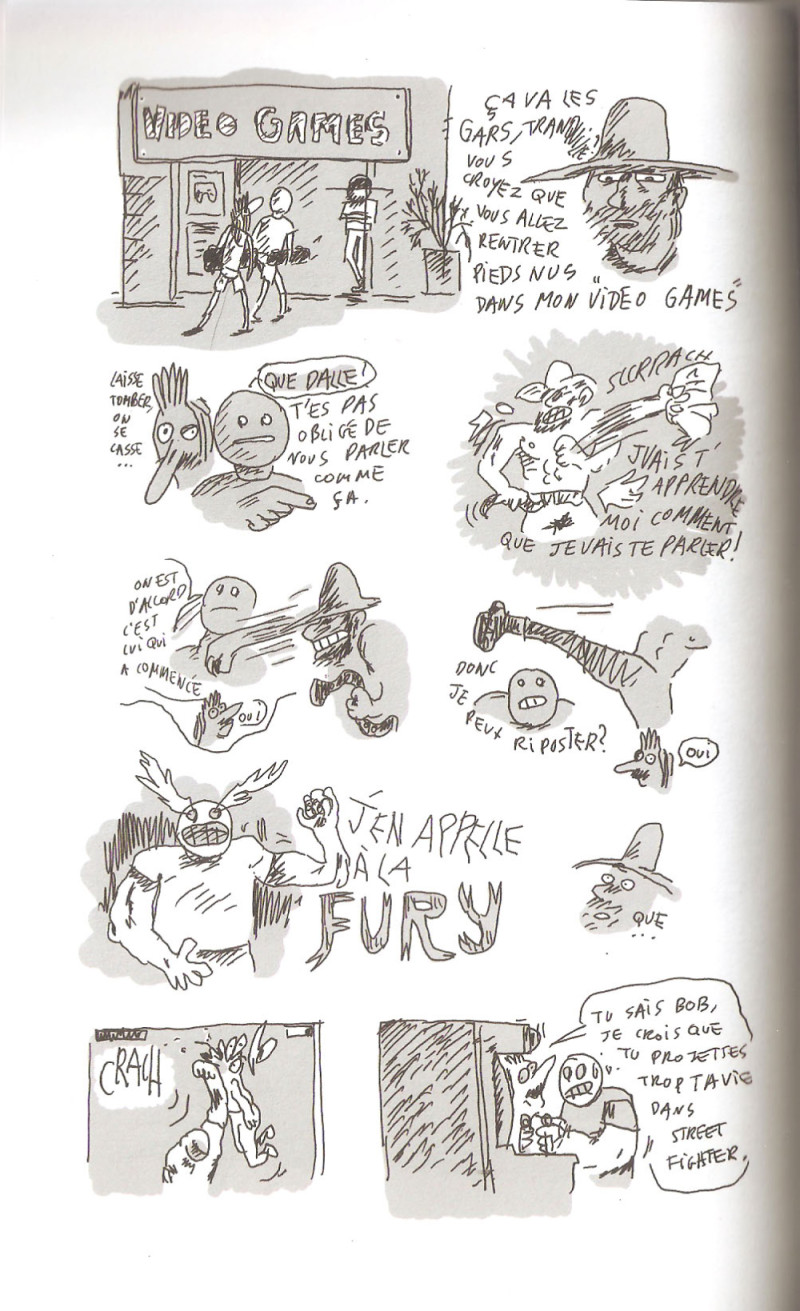 VIDEO GAMES
ÇA VA LES
GARS, TRANQUILLE?
VOUS
CROYEZ QUE
VOUS ALLEZ
RENTRER
PIEDS NUS
DANS MON "VIDEO GAMES"
LAISSE
TOMBER,
ON
SE
CASSE
...
QUE DALLE!
T'ES PAS
OBLIGÉ DE
NOUS PARLER
COMME
ÇA.
SCRRRACH
JVAIS T'
APPRENDRE
MOI COMMENT
QUE JE VAIS TE PARLER!
ON EST
D'ACCORD
C'EST
LUI QUI
A COMMENCÉ
OUI
DONC
JE
PEUX RIPOSTER?
OUI
J'EN APPELLE
À LA
FURY
QUE
...
CRACH
TU SAIS BOB,
JE CROIS QUE
TU PROJETTES
TROP TA VIE
DANS
STREET
FIGHTER.